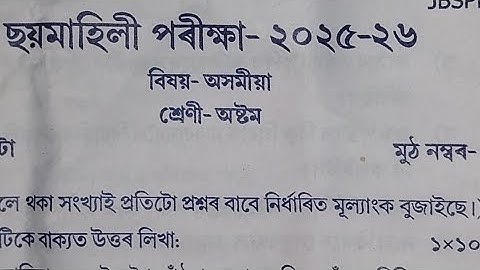 JBSP
ছয়মাহিলী পৰীক্ষা- ২০২৫-২৬
বিষয়- অসমীয়া
শ্ৰেণী- অষ্টম
টা মুঠ নম্বৰ-
লে থকা সংখ্যাই প্ৰতিটো প্ৰশ্নৰ বাবে নিৰ্ধাৰিত মূল্যাংক বুজাইছে।)
টিকে বাক্যত উত্তৰ লিখা: ১×১০